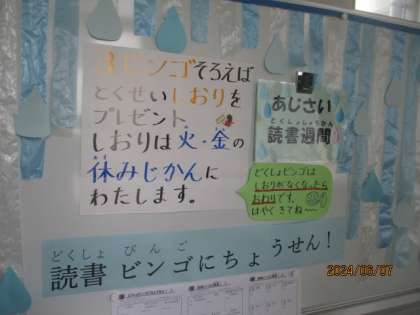 3ビンゴそろえば
とくせいしおりを
プレゼント
しおりは火・金の
休みじかんに
わたします。
あじさい
どくしょしゅうかん
読書週間
どくしょビンゴは
しおりがなくなったら
おわりです。
はやくきてね〜
どくしょ びんご
読書 ビンゴにちょうせん!
2024/06/07